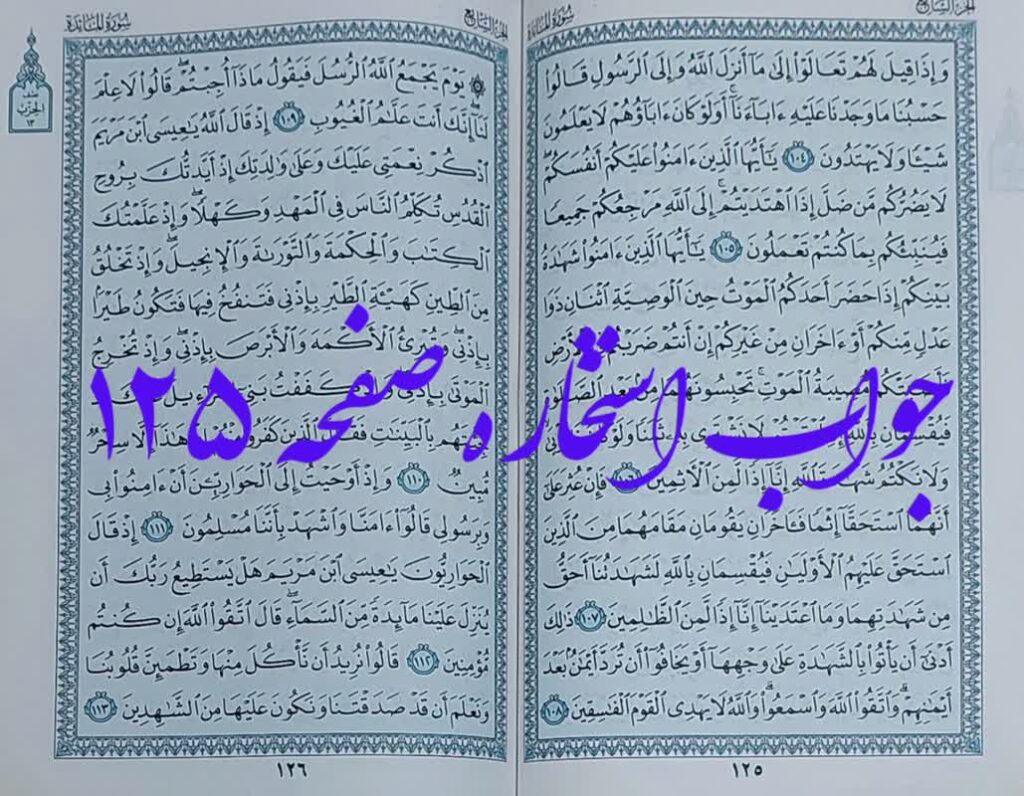 الجزء السابع
سورة المائدة
وَإِذَا قِيلَ لَهُمْ تَعَالَوْا۟ إِلَىٰ مَآ أَنزَلَ ٱللَّهُ وَإِلَى ٱلرَّسُولِ قَالُوا۟
حَسْبُنَا مَا وَجَدْنَا عَلَيْهِ ءَابَآءَنَآ ۚ أَوَلَوْ كَانَ ءَابَآؤُهُمْ لَا يَعْلَمُونَ
شَيْـًٔا وَلَا يَهْتَدُونَ ١٠٤ يَـٰٓأَيُّهَا ٱلَّذِينَ ءَامَنُوا۟ عَلَيْكُمْ أَنفُسَكُمْ ۖ
لَا يَضُرُّكُم مَّن ضَلَّ إِذَا ٱهْتَدَيْتُمْ ۚ إِلَى ٱللَّهِ مَرْجِعُكُمْ جَمِيعًا
فَيُنَبِّئُكُم بِمَا كُنتُمْ تَعْمَلُونَ ١٠٥ يَـٰٓأَيُّهَا ٱلَّذِينَ ءَامَنُوا۟ شَهَـٰدَةُ
بَيْنِكُمْ إِذَا حَضَرَ أَحَدَكُمُ ٱلْمَوْتُ حِينَ ٱلْوَصِيَّةِ ٱثْنَانِ ذَوَا
عَدْلٍ مِّنكُمْ أَوْ ءَاخَرَانِ مِنْ غَيْرِكُمْ إِنْ أَنتُمْ ضَرَبْتُمْ
مُّصِيبَةُ ٱلْمَوْتِ ۚ تَحْبِسُونَهُمَا مِنۢ بَعْدِ ٱلصَّلَوٰةِ
فَيُقْسِمَانِ بِٱللَّهِ لَا نَشْتَرِى بِهِۦ ثَمَنًا وَلَوْ كَانَ
وَلَا نَكْتُمُ شَهَـٰدَةَ ٱللَّهِ إِنَّآ إِذًا لَّمِنَ ٱلْـَٔاثِمِينَ ١٠٦ فَإِنْ عُثِرَ عَلَىٰٓ
أَنَّهُمَا ٱسْتَحَقَّآ إِثْمًا فَـَٔاخَرَانِ يَقُومَانِ مَقَامَهُمَا مِنَ ٱلَّذِينَ
ٱسْتَحَقَّ عَلَيْهِمُ ٱلْأَوْلَيَـٰنِ فَيُقْسِمَانِ بِٱللَّهِ لَشَهَـٰدَتُنَآ أَحَقُّ
مِن شَهَـٰدَتِهِمَا وَمَا ٱعْتَدَيْنَآ إِنَّآ إِذًا لَّمِنَ ٱلظَّـٰلِمِينَ ١٠٧ ذَٰلِكَ
أَدْنَىٰٓ أَن يَأْتُوا۟ بِٱلشَّهَـٰدَةِ عَلَىٰ وَجْهِهَآ أَوْ يَخَافُوٓا۟ أَن تُرَدَّ أَيْمَـٰنٌۢ بَعْدَ
أَيْمَـٰنِهِمْ ۗ وَٱتَّقُوا۟ ٱللَّهَ وَٱسْمَعُوا۟ ۗ وَٱللَّهُ لَا يَهْدِى ٱلْقَوْمَ ٱلْفَـٰسِقِينَ ١٠٨
١٢٥
الجزء السابع
سورة المائدة
يَوْمَ يَجْمَعُ ٱللَّهُ ٱلرُّسُلَ فَيَقُولُ مَاذَآ أُجِبْتُمْ ۖ قَالُوا۟ لَا عِلْمَ
لَنَآ ۖ إِنَّكَ أَنتَ عَلَّـٰمُ ٱلْغُيُوبِ ١٠٩ إِذْ قَالَ ٱللَّهُ يَـٰعِيسَى ٱبْنَ مَرْيَمَ
ٱذْكُرْ نِعْمَتِى عَلَيْكَ وَعَلَىٰ وَٰلِدَتِكَ إِذْ أَيَّدتُّكَ بِرُوحِ
ٱلْقُدُسِ تُكَلِّمُ ٱلنَّاسَ فِى ٱلْمَهْدِ وَكَهْلًا ۖ وَإِذْ عَلَّمْتُكَ
ٱلْكِتَـٰبَ وَٱلْحِكْمَةَ وَٱلتَّوْرَىٰةَ وَٱلْإِنجِيلَ ۖ وَإِذْ تَخْلُقُ
مِنَ ٱلطِّينِ كَهَيْـَٔةِ ٱلطَّيْرِ بِإِذْنِى فَتَنفُخُ فِيهَا فَتَكُونُ طَيْرًۢا
بِإِذْنِى ۖ وَتُبْرِئُ ٱلْأَكْمَهَ وَٱلْأَبْرَصَ بِإِذْنِى ۖ وَإِذْ تُخْرِجُ
ٱلْمَوْتَىٰ بِإِذْنِى ۖ وَإِذْ كَفَفْتُ بَنِىٓ
جِئْتَهُم بِٱلْبَيِّنَـٰتِ فَقَالَ ٱلَّذِينَ كَفَرُوا۟ هَـٰذَآ إِلَّا سِحْرٌ
مُّبِينٌ ١١٠ وَإِذْ أَوْحَيْتُ إِلَى ٱلْحَوَارِيِّـۧنَ أَنْ ءَامِنُوا۟ بِى
وَبِرَسُولِى قَالُوٓا۟ ءَامَنَّا وَٱشْهَدْ بِأَنَّنَا مُسْلِمُونَ ١١١ إِذْ قَالَ
ٱلْحَوَارِيُّونَ يَـٰعِيسَى ٱبْنَ مَرْيَمَ هَلْ يَسْتَطِيعُ رَبُّكَ أَن
يُنَزِّلَ عَلَيْنَا مَآئِدَةً مِّنَ ٱلسَّمَآءِ ۖ قَالَ ٱتَّقُوا۟ ٱللَّهَ إِن كُنتُم
مُّؤْمِنِينَ ١١٢ قَالُوا۟ نُرِيدُ أَن نَّأْكُلَ مِنْهَا وَتَطْمَئِنَّ قُلُوبُنَا
وَنَعْلَمَ أَن قَدْ صَدَقْتَنَا وَنَكُونَ عَلَيْهَا مِنَ ٱلشَّـٰهِدِينَ ١١٣
١٢٦
الحزب
١٣
جواب استخاره صفحه ۱۲۵